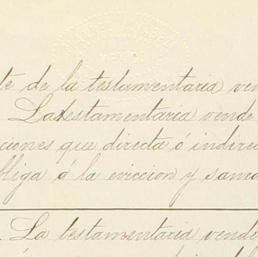 te de la testamentaria ven
La testamentaria vende
ciones que directa ó indirec
bliga á la eviccion y sanea
La testamentaria vende